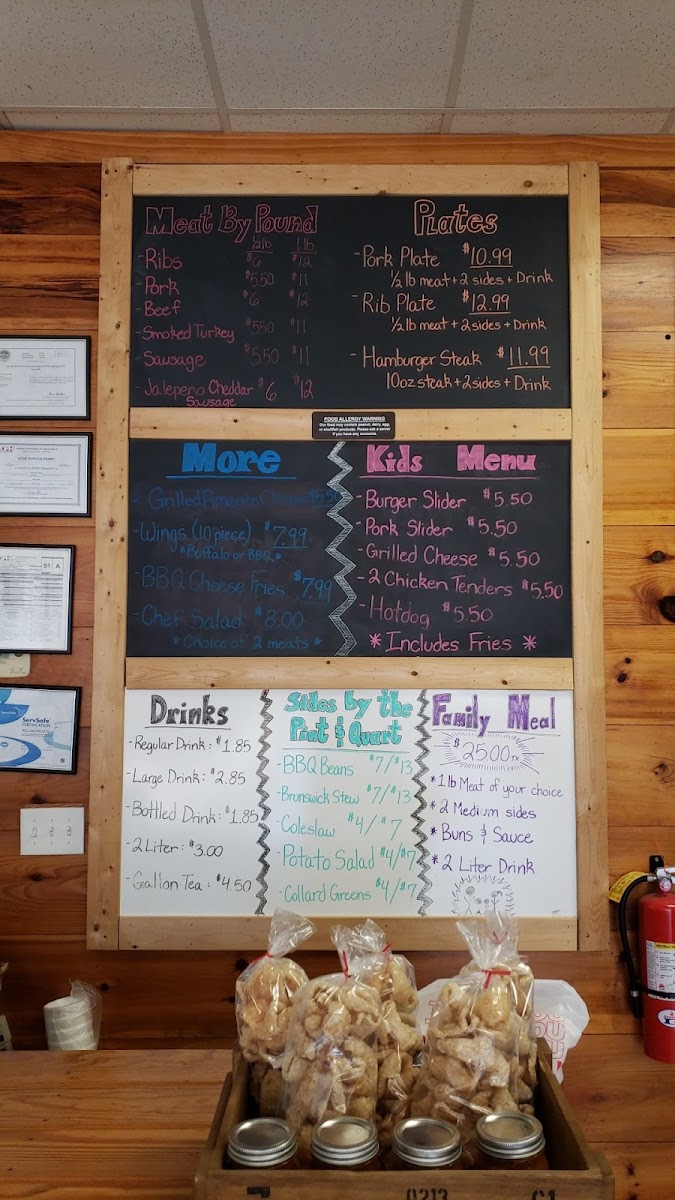 Meat By Pound
½lb 1 lb
- Ribs $6 $12
- Pork $5.50 $11
- Beef $6 $12
- Smoked Turkey $5.50 $11
- Sausage $5.50 $11
- Jalepeno Cheddar $6 $12
Sausage
Plates
- Pork Plate $10.99
½ lb meat + 2 sides + Drink
- Rib Plate $12.99
½ lb meat + 2 sides + Drink
- Hamburger Steak $11.99
10oz steak + 2 sides + Drink
FOOD ALLERGY WARNING
Our food may contain peanut, dairy, egg,
or shellfish products. Please ask a server
if you have any concerns.
More
- Grilled Pimento Cheese $5.50
- Wings (10 piece) $7.99
*Buffalo or BBQ*
- BBQ Cheese Fries $7.99
- Chef Salad $8.00
*Choice of 2 meats*
Kids Menu
- Burger Slider $5.50
- Pork Slider $5.50
- Grilled Cheese $5.50
- 2 Chicken Tenders $5.50
- Hotdog $5.50
* Includes Fries *
Drinks
- Regular Drink: $1.85
- Large Drink: $2.85
- Bottled Drink: $1.85
- 2 Liter: $3.00
- Gallon Tea: $4.50
Sides by the
Pint & Quart
- BBQ Beans $7/$13
- Brunswick Stew $7/$13
- Coleslaw $4/$7
- Potato Salad $4/$7
- Collard Greens $4/$7
Family Meal
$25.00
* 1 lb Meat of your choice
* 2 Medium sides
* Buns & Sauce
* 2 Liter Drink
91 A
ServSafe
CERTIFICATION
0213 C1